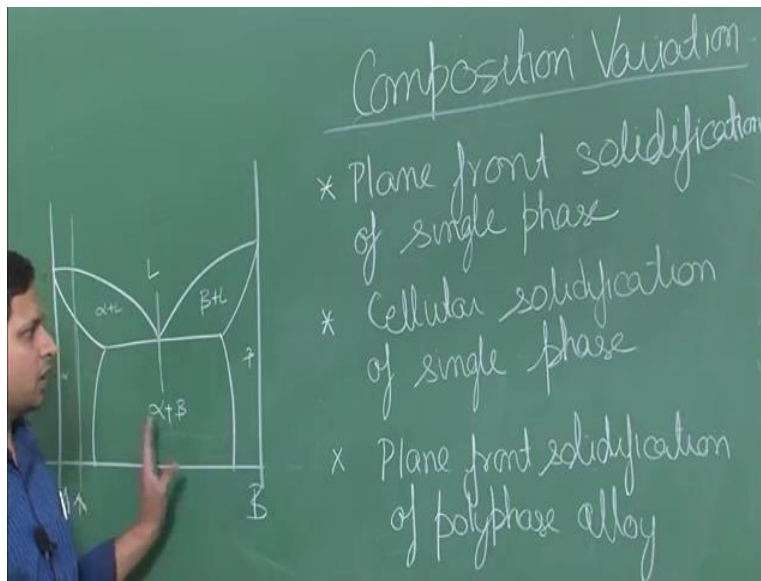 Composition Variation
* Plane front solidification
of single phase
* Cellular solidification
of single phase
* Plane front solidification
of polyphase alloy
L
α+L
β+L
α
α+β
B